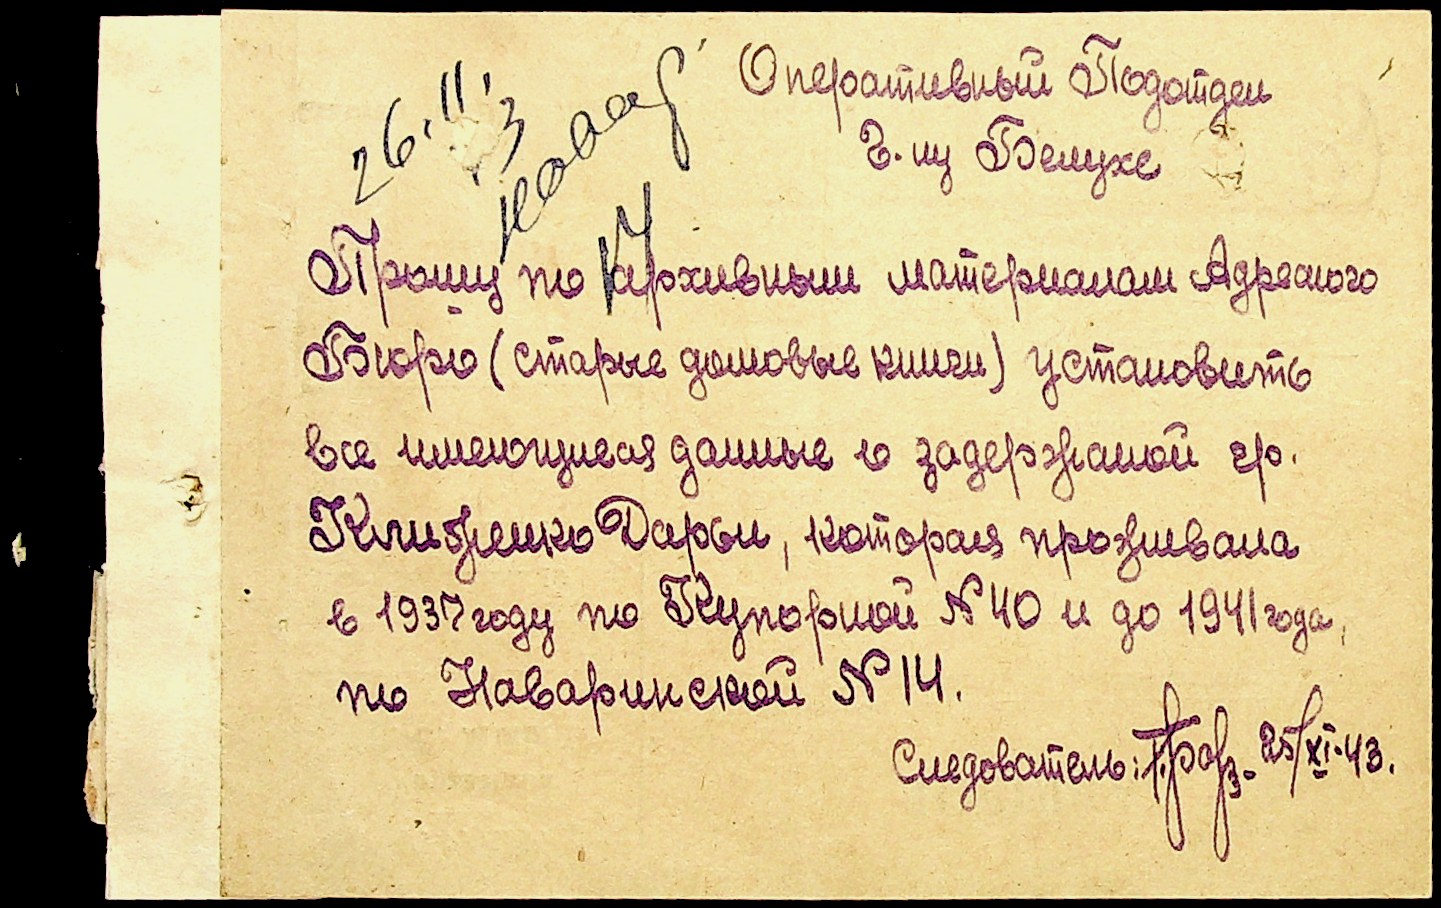 Оперативный Подотдел
Г. ну Белухе
26.11.3
Прошу по архивным материалам Адресного
Бюро (старые домовые книги) установить
все имеющиеся данные о задержаной гр.
Клименко Дарьи, которая проживала
в 1937 году по Купорной № 40 и до 1941 года,
по Наваринской № 14.
Следователь: 25/XI-43.